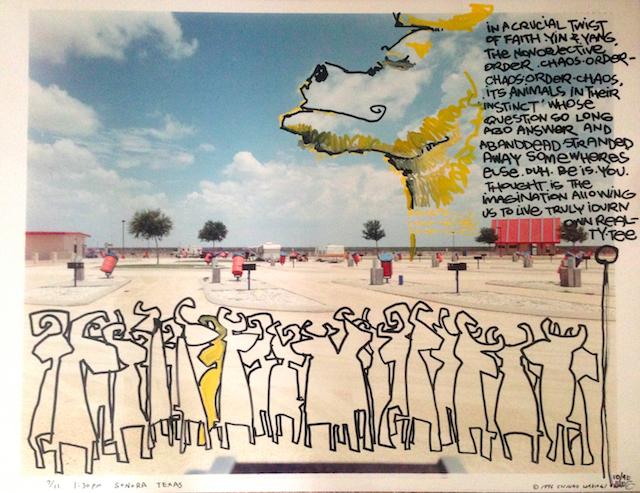 IN A CRUCIAL TWIST
OF FAITH. YIN & YANG.
THE NONOBJECTIVE
ORDER. CHAOS. ORDER-
CHAOS. ORDER. CHAOS.
ITS ANIMALS IN THEIR
INSTINCT' WHOSE
QUESTION SO LONG
AGO ANSWER AND
ABANDDEAD STRANDED
AWAY SOMEWHERES
ELSE. DUH. BE IS. YOU.
THOUGHT IS THE
IMAGINATION ALLOWING
US TO LIVE TRULY IOURN
OWN REAL-
TY-TEE
7/11 1:30PM SONORA TEXAS
© 1996
10/98